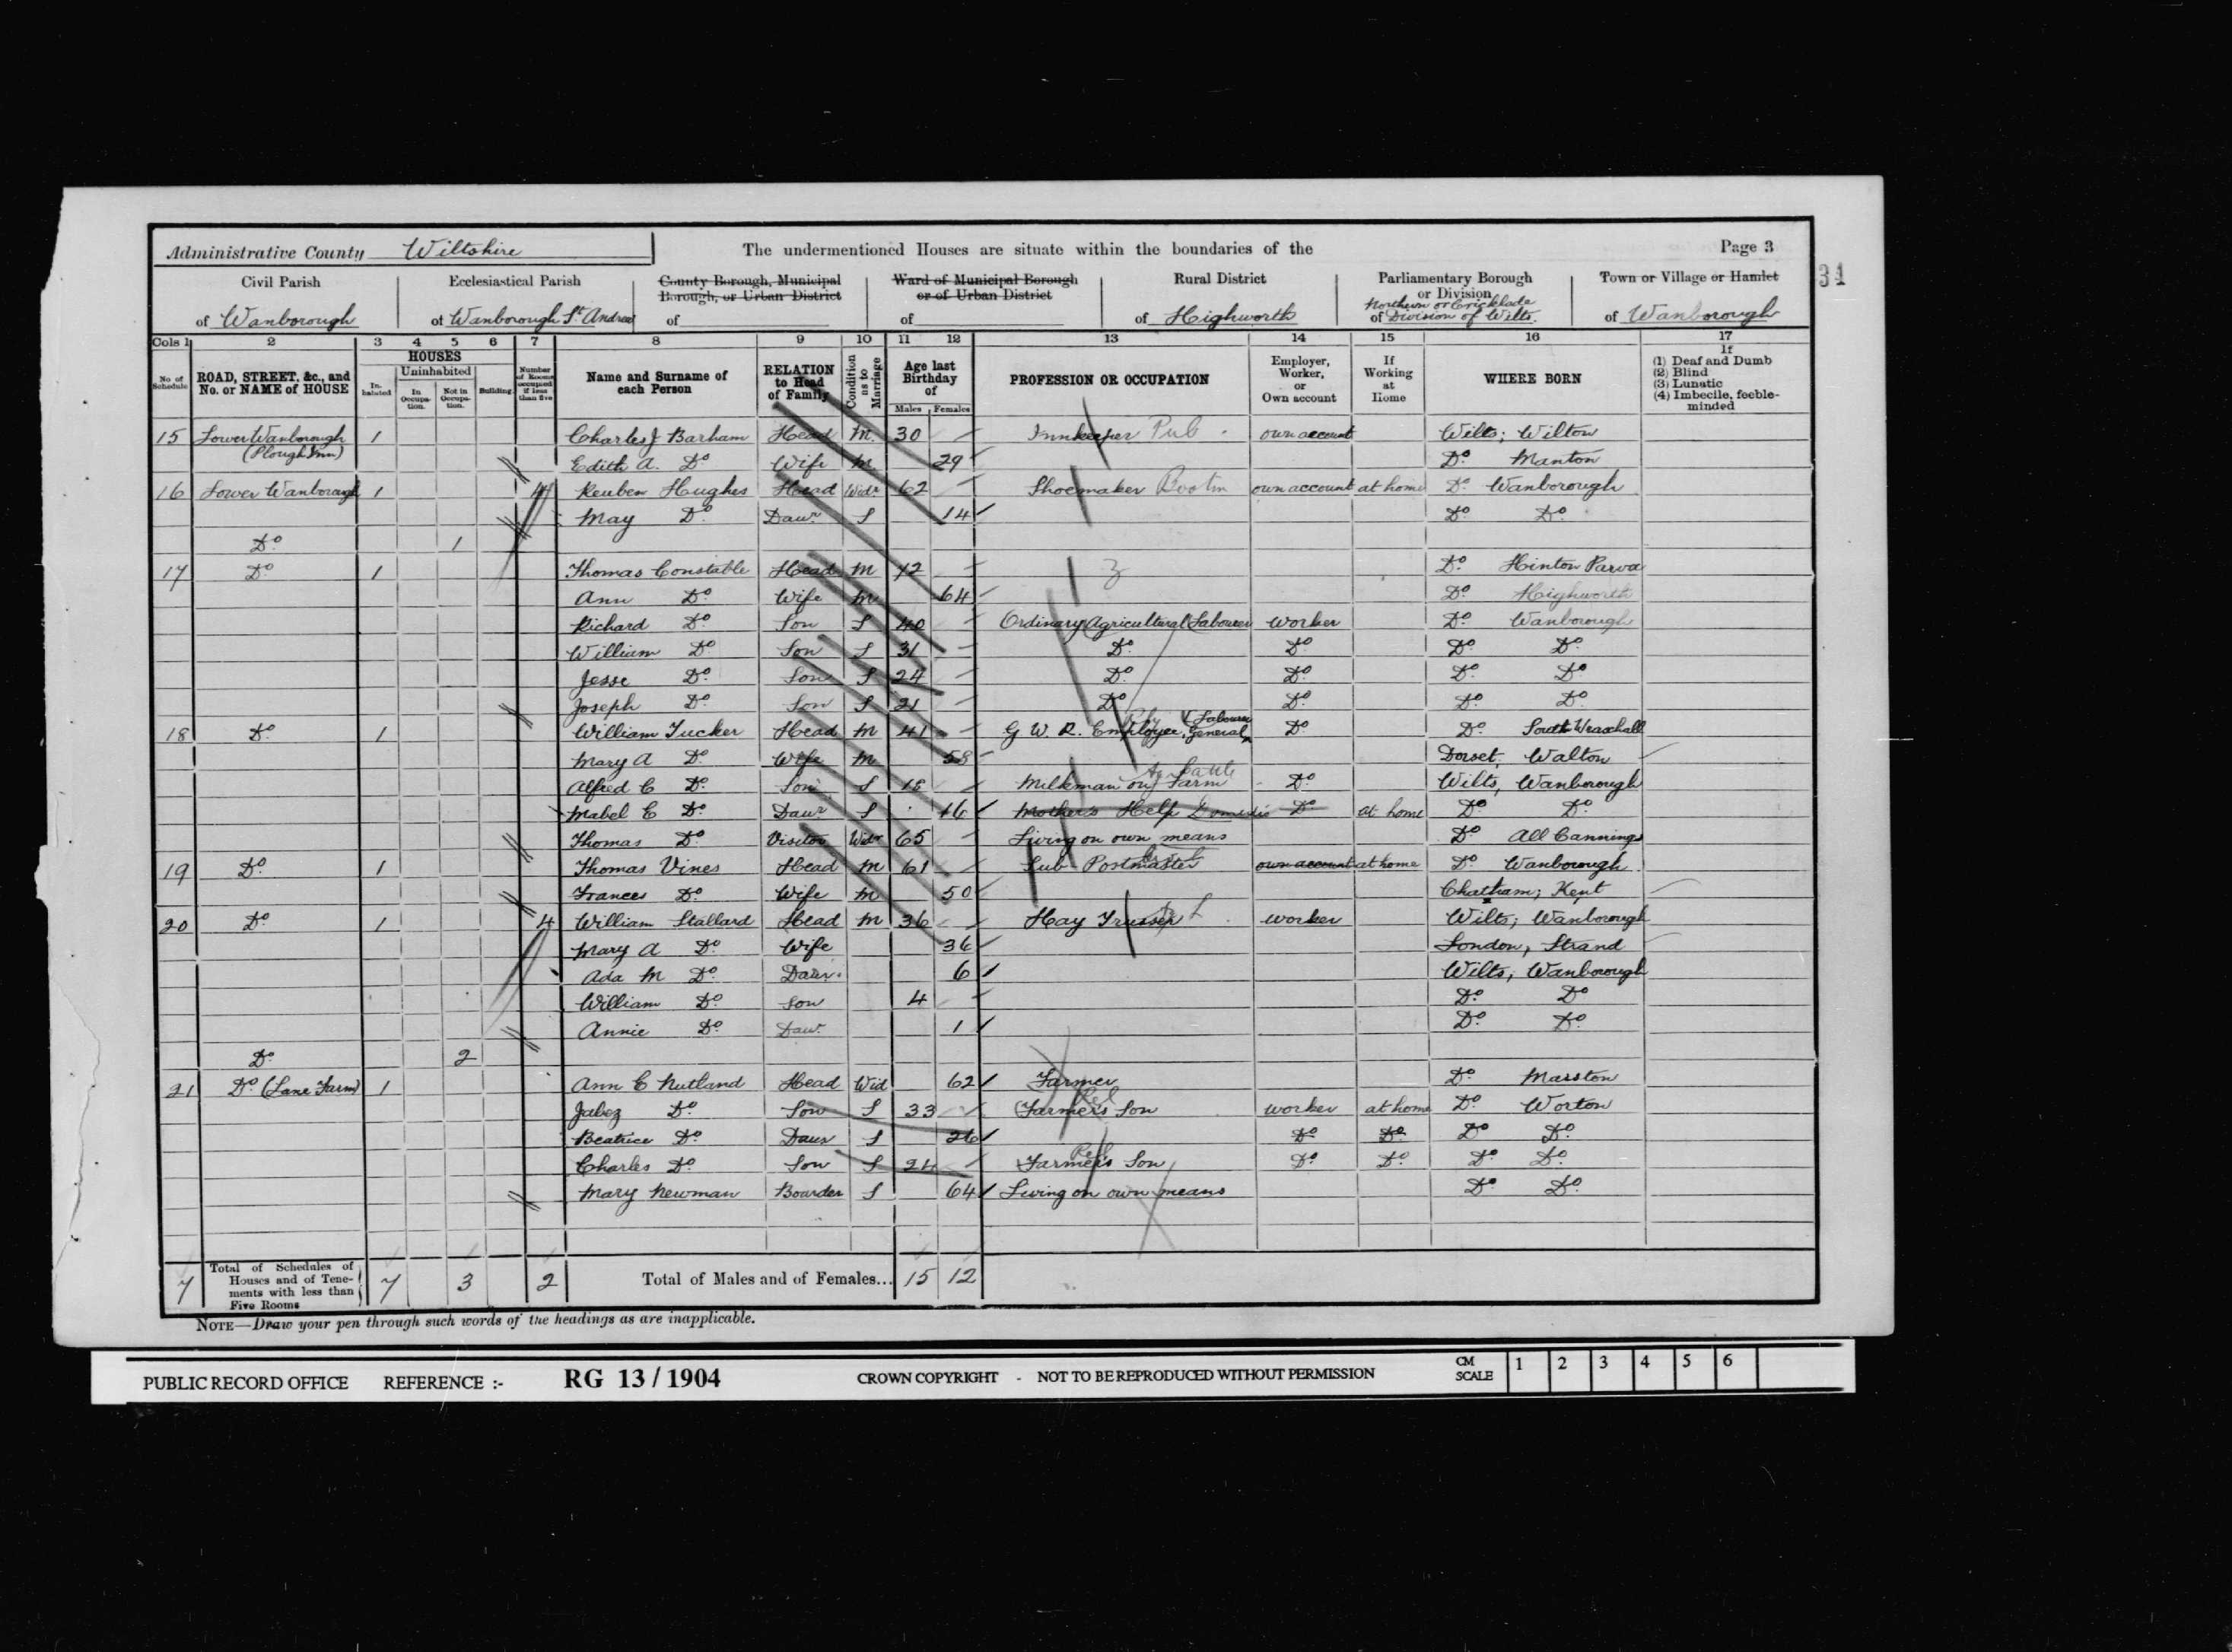 Administrative County Wiltshire The undermentioned Houses are situate within the boundaries of the Page 3
31
Civil Parish Ecclesiastical Parish County Borough, Municipal Borough, or Urban District Ward of Municipal Borough or of Urban District Rural District Parliamentary Borough or Division Town or Village or Hamlet
of Wanborough of Wanborough St. Andrew of of of Highworth Northern or Cricklade of Division of Wilts. of Wanborough
Cols 1 2 3 4 5 6 7 8 9 10 11 12 13 14 15 16 17
No of Schedule ROAD, STREET, &c., and No. or NAME of HOUSE HOUSES Inhabited Uninhabited In Occupation. Not in Occupation. Building Number of Rooms occupied if less than five Name and Surname of each Person RELATION to Head of Family Condition as to Marriage Age last Birthday of Males Females PROFESSION OR OCCUPATION Employer, Worker, or Own account If Working at Home WHERE BORN If (1) Deaf and Dumb (2) Blind (3) Lunatic (4) Imbecile, feeble-minded
15 Lower Wanborough (Plough Inn) 1 Charles J Barham Head M. 30 Innkeeper Pub own account Wilts; Wilton
Edith A. Do Wife M 29 Do Manton
16 Lower Wanborough 1 4 Reuben Hughes Head Widr 62 Shoemaker Bootm own account at home Do Wanborough
May Do Daur S 14 Do Do
Do 1
17 Do 1 Thomas Constable Head M 72 Do Hinton Parva
Ann Do Wife M 64 Do Highworth
Richard Do Son S 40 Ordinary Agricultural Labourer Worker Do Wanborough
William Do Son S 31 Do Do Do Do
Jesse Do Son S 24 Do Do Do Do
Joseph Do Son S 21 Do Do Do Do
18 Do 1 William Tucker Head M 41 G. W. R. Employee, General Labourer Do Do South Wraxhall
Mary A Do Wife M 58 Dorset, Walton
Alfred C Do Son S 18 Milkman on Farm Ag Cattle Do Wilts, Wanborough
Mabel E Do Daur S 16 Mothers Help Domestic Do at home Do Do
Thomas Do Visitor Widr 65 Living on own means Do All Cannings
19 Do 1 Thomas Vines Head M 61 Sub-Postmaster own account at home Do Wanborough
Frances Do Wife M 50 Chatham; Kent
20 Do 1 4 William Stallard Head M 36 Hay Trusser worker Wilts; Wanborough
Mary A Do Wife 36 London, Strand
Ada M Do Daur. 6 Wilts, Wanborough
William Do Son 4 Do Do
Annie Do Daur. 1 Do Do
Do 2
21 Do (Lane Farm) 1 Ann E Nutland Head Wid 62 Farmer Do Marston
Jabez Do Son S 33 Farmer's Son Rel worker at home Do Worton
Beatrice Do Daur S 26 Do Do Do Do
Charles Do Son S 24 Farmer's Son Rel Do Do Do Do
Mary Newman Boarder S 64 Living on own means Do Do
7 Total of Schedules of Houses and of Tenements with less than Five Rooms 7 3 2 Total of Males and of Females... 15 12
NOTE—Draw your pen through such words of the headings as are inapplicable.
PUBLIC RECORD OFFICE REFERENCE :- RG 13 / 1904 CROWN COPYRIGHT - NOT TO BE REPRODUCED WITHOUT PERMISSION CM SCALE 1 2 3 4 5 6